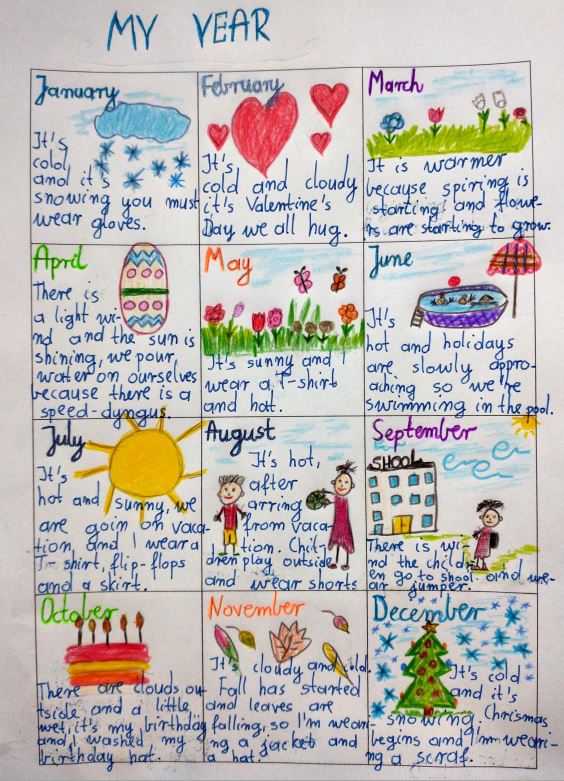 MY YEAR
January
It's
cold,
and it's
snowing you must
wear gloves.
February
It's
cold and cloudy
it's Valentine's
Day we all hug.
March
It is warmer
because spiring is
starting and flowe-
rs are starting to grow.
April
There is
a light wi-
nd and the sun is
shining, we pour
water on ourselves
because there is a
speed-dyngus.
May
It's sunny and I
wear a T-shirt
and hat.
June
It's
hot and holidays
are slowly appro-
aching so we're
swimming in the pool.
July
It's
hot and sunny, we
are goin on vaca-
tion, and I wear a
T-shirt, flip-flops
and a skirt.
August
It's hot,
after
arring
from vaca-
tion. Chil-
dren play outside
and wear shorts
September
SHOOL
There is wi-
nd the childr-
en go to shool. and we-
ar jumper.
October
There are clouds ou-
tside and a little
wet, it's my birthday
and I washed my
birthday hat.
November
It's cloudy and cold.
Fall has started
and leaves are
falling, so I'm weari-
ng a jacket and
a hat.
December
It's cold
and it's
snowing. Chrismas
begins and I'm weari-
ng a scraf.